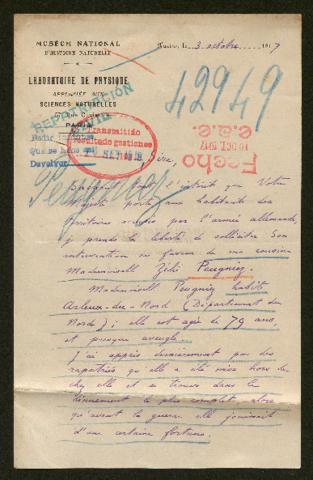 MUSÉUM NATIONAL
D'HISTOIRE NATURELLE
LABORATOIRE DE PHYSIQUE
APPLIQUÉE AUX
SCIENCES NATURELLES
PARIS
le 3 octobre 1917
42949
REPATRIACION
Transmitido
resultado gestiones
Fecho
10 OCT. 1917
Sire,
l'intérêt que Votre
Majesté porte aux habitants des
territoires occupés par l'armée allemande,
je prends la liberté de solliciter Son
intervention en faveur de ma cousine
Mademoiselle Zélie Peugniez.
Mademoiselle Peugniez habite
Arleux-du-Nord (Département du
Nord); elle est agée de 79 ans,
et presque aveugle.
J'ai appris dernièrement par des
rapatriés qu'elle a été mise hors de
chez elle et se trouve dans le
dénuement le plus complet, alors
qu'avant la guerre elle jouissait
d'une certaine fortune.